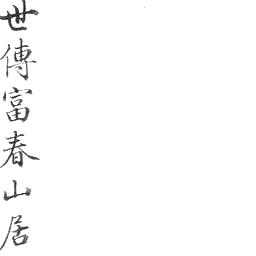 世傳富春山居